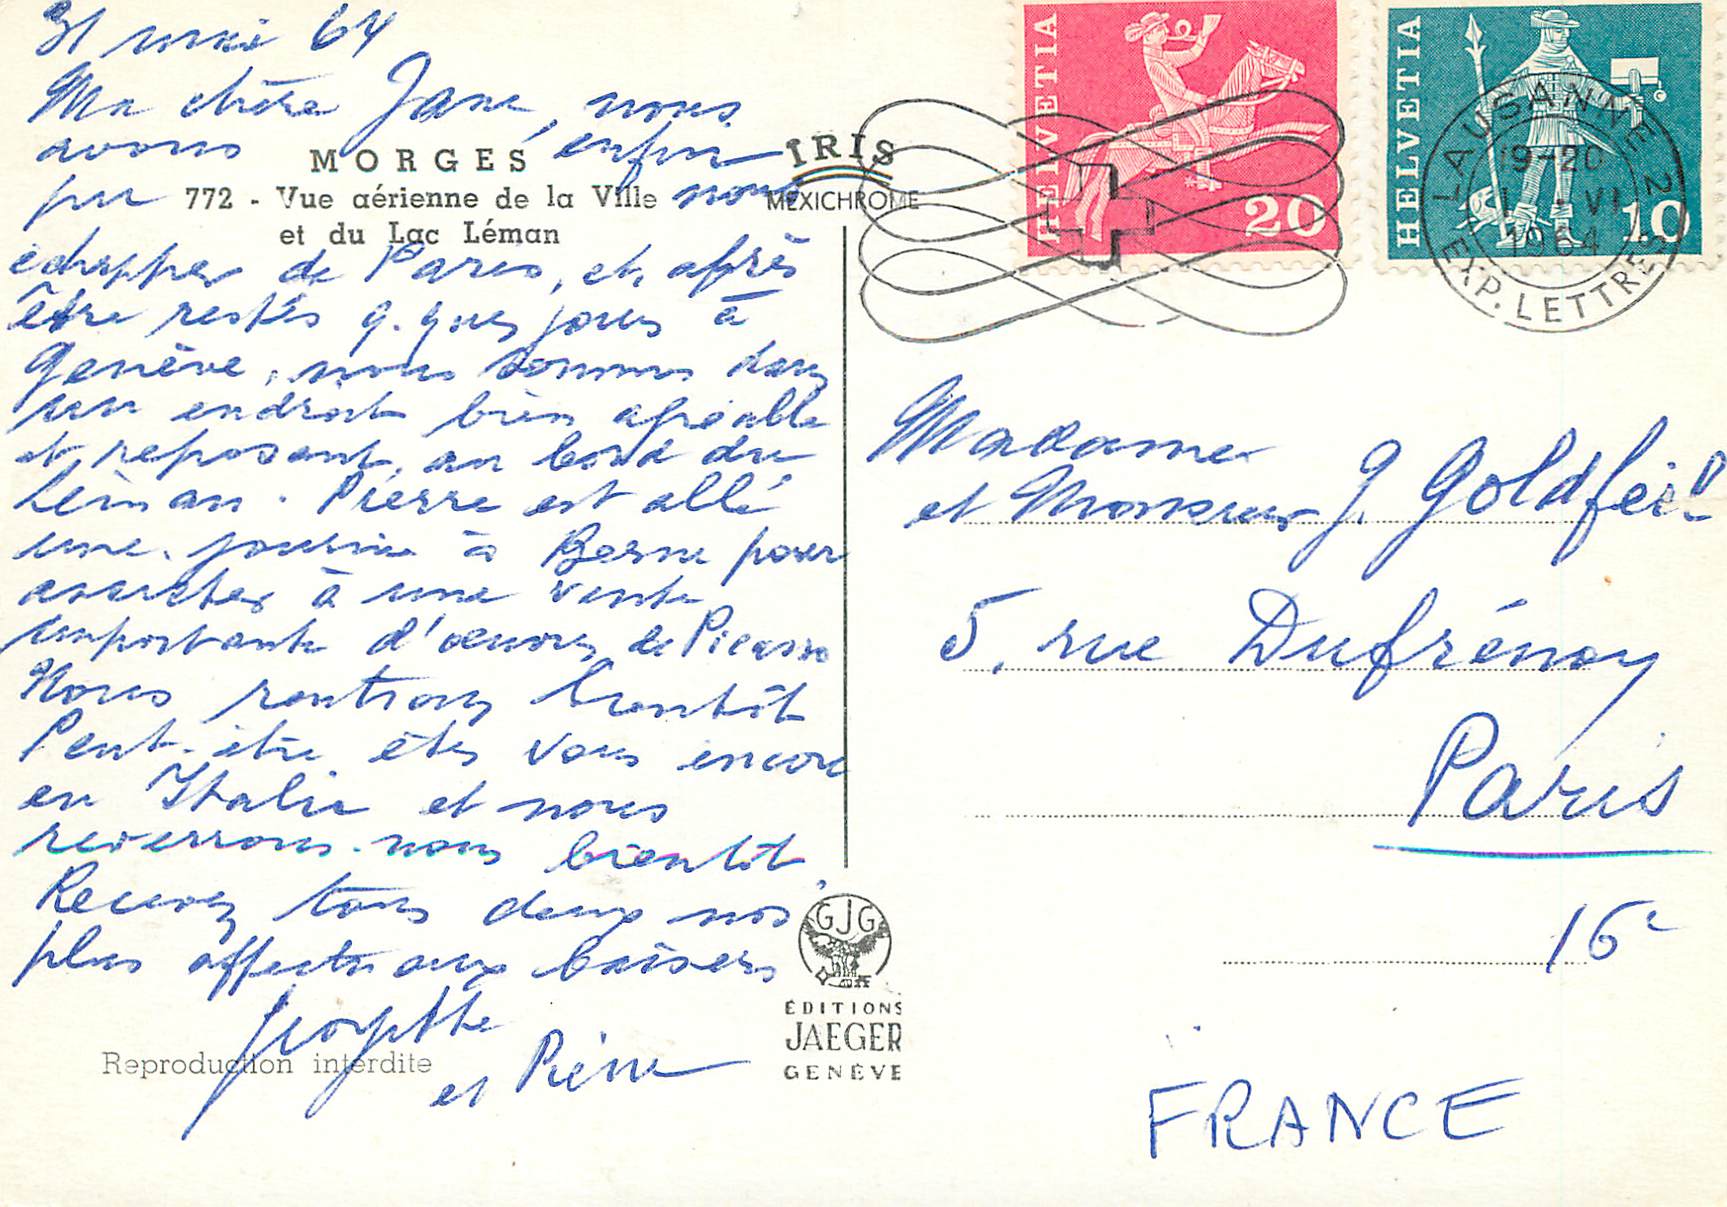 31 mai 64
Ma chère Jane, nous
avons enfin
pu nous
échapper de Paris, et, après
être restés q. ques jours à
Genève, nous sommes dans
un endroit bien agréable
et reposant, au bord du
Léman. Pierre est allé
une journée à Berne pour
assister à une vente
importante d'oeuvres de Picasso
Nous rentrons bientôt
Peut-être êtes vous encore
en Italie et nous
reverrons-nous bientôt.
Recevez tous deux nos
plus affectueux baisers
Georgette
et Pierre
MORGES
772 - Vue aérienne de la Ville
et du Lac Léman
IRIS
MEXICHROME
Reproduction interdite
GJG
ÉDITIONS
JAEGER
GENÈVE
HELVETIA
20
HELVETIA
10
LAUSANNE 2
19-20
1.-VI
1964
EXP. LETTRES
Madame
et Monsieur J. Goldfeil
5, rue Dufrénoy
Paris
16e
FRANCE